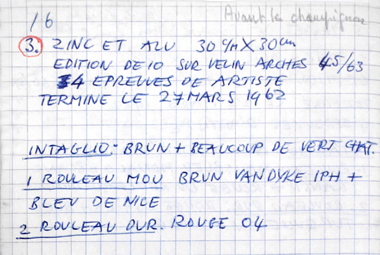 16 Avant les champignons
3. ZINC ET ALU 30 c/m X 30 cm
EDITION DE 10 SUR VELIN ARCHES 45/63
4 EPREUVES DE ARTISTE
TERMINE LE 27 MARS 1962
INTAGLIO:- BRUN + BEAUCOUP DE VERT CHAT.
1 ROULEAU MOU BRUN VANDYKE 1PH +
BLEU DE NICE
2 ROULEAU DUR. ROUGE 04